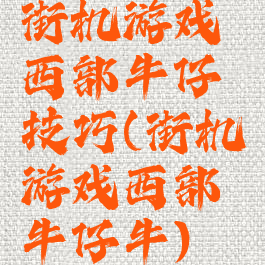 街机游戏
西部牛仔
技巧(街机
游戏西部
牛仔牛)